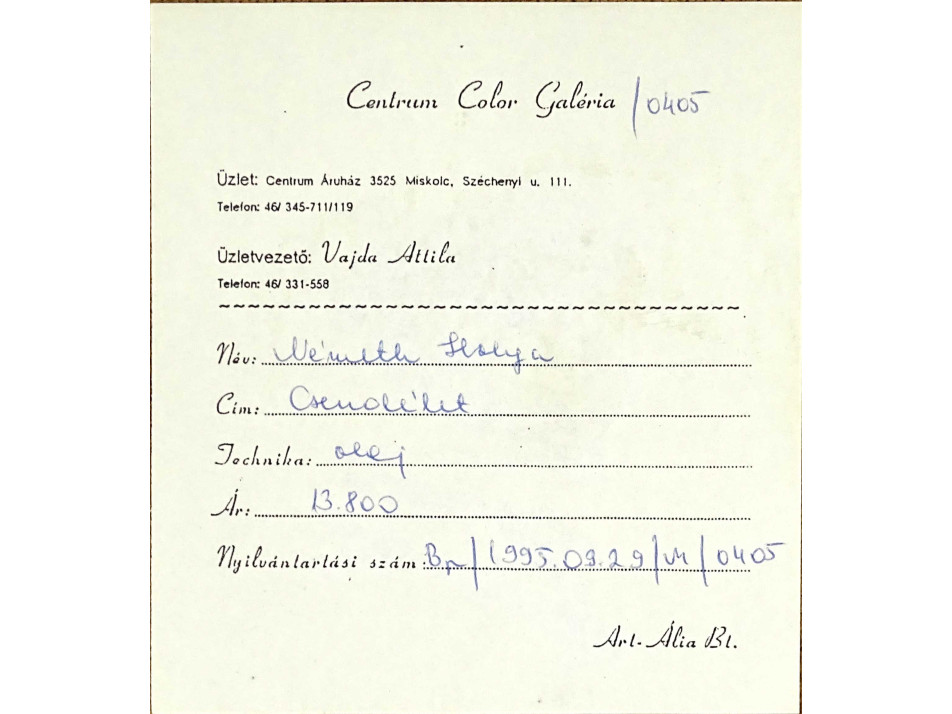 Centrum Color Galéria /0405
Üzlet: Centrum Áruház 3525 Miskolc, Széchenyi u. 111.
Telefon: 46/ 345-711/119
Üzletvezető: Vajda Attila
Telefon: 46/ 331-558
~~~~~~~~~~~~~~~~~~~~~~~~~~~~~~~~~~~
Név: Németh
Cím: Csendélet
Technika: olaj
Ár: 13.800
Nyilvántartási szám: Bp/1995.09.29/VI/0405
Art-Ália Bt.